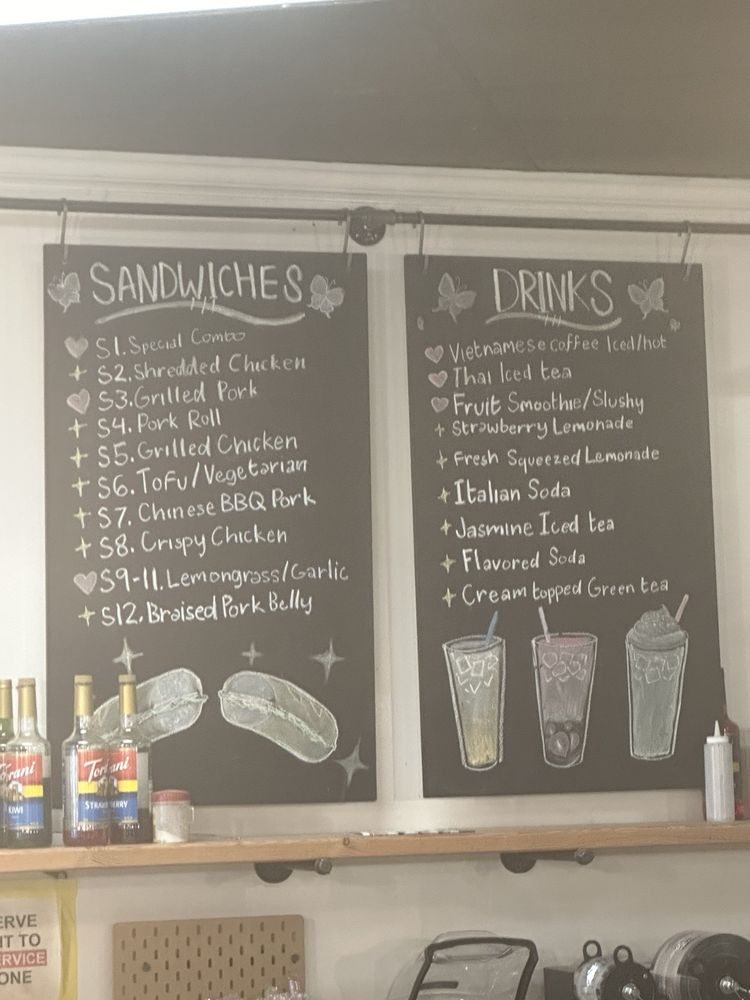 SANDWICHES
S1. Special Combo
S2. Shredded Chicken
S3. Grilled Pork
S4. Pork Roll
S5. Grilled Chicken
S6. Tofu/Vegetarian
S7. Chinese BBQ Pork
S8. Crispy Chicken
S9-11. Lemongrass/Garlic
S12. Braised Pork Belly
DRINKS
Vietnamese coffee Iced/hot
Thai Iced tea
Fruit Smoothie/Slushy
Strawberry Lemonade
Fresh Squeezed Lemonade
Italian Soda
Jasmine Iced tea
Flavored Soda
Cream topped Green tea
Torani
KIWI
Torani
STRAWBERRY
ERVE
IT TO
ERVICE
ONE